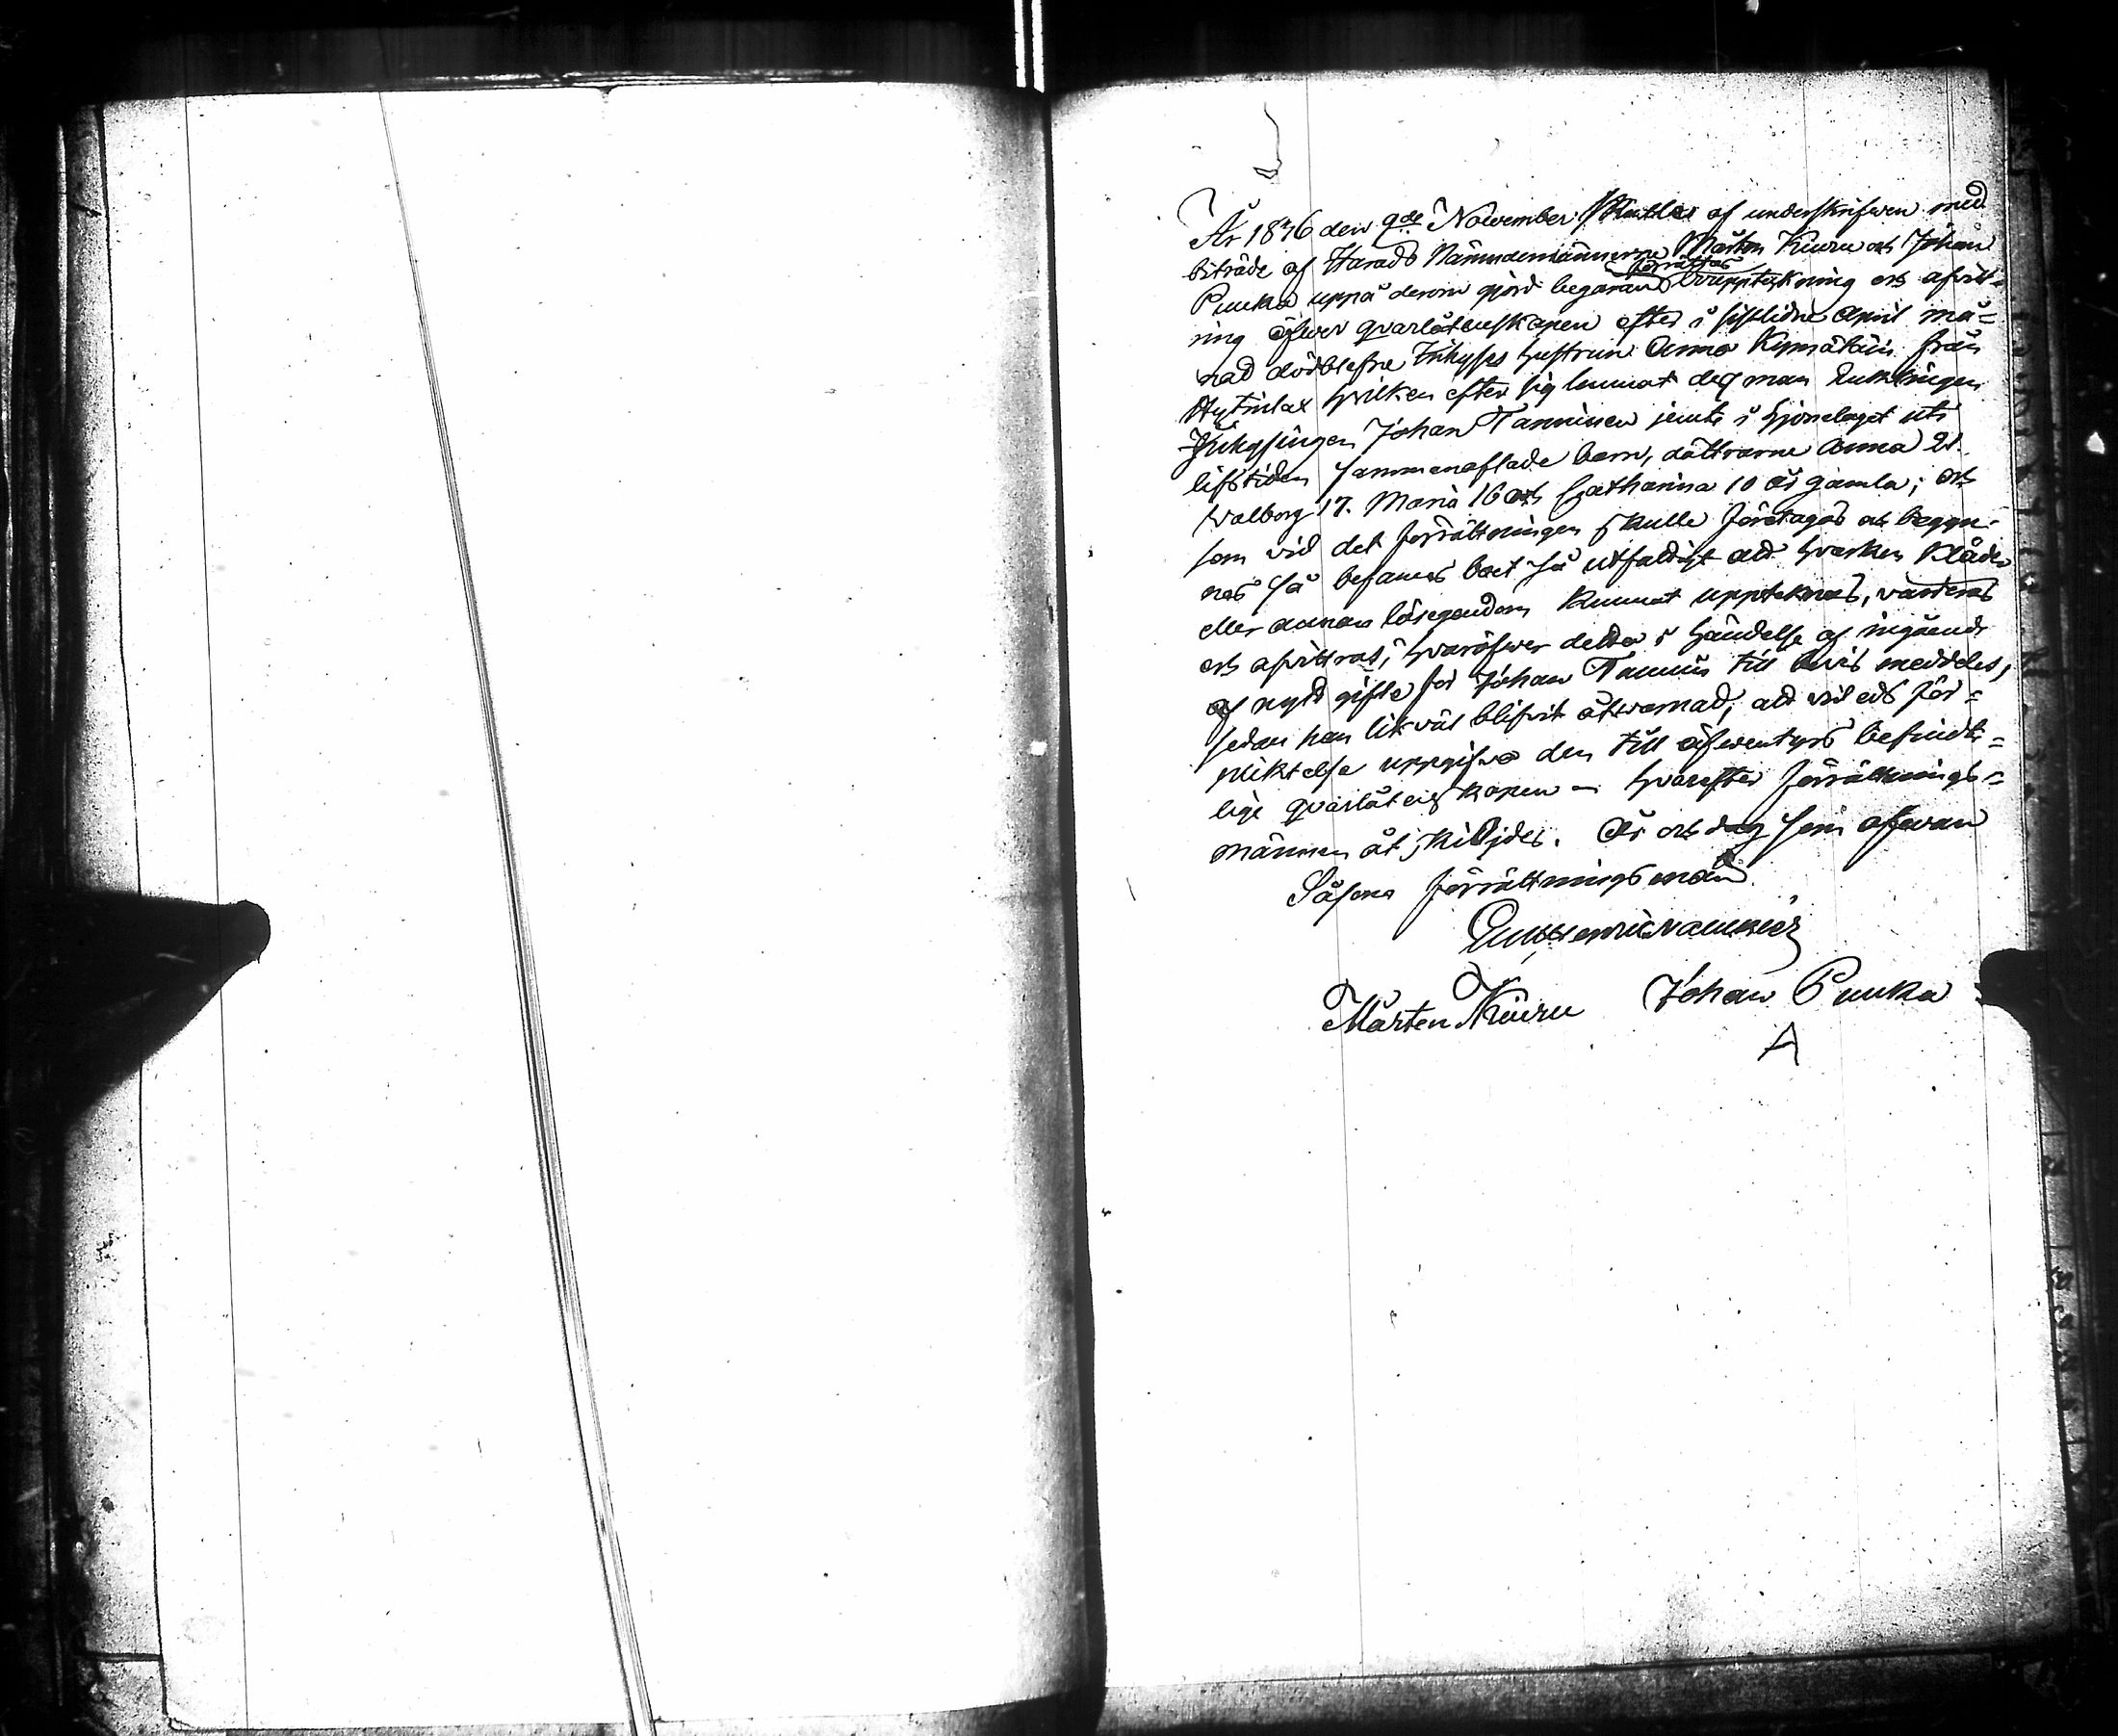 År 1846 den 9de November af underskrifwen med
biträde af Härads Nämndemännerne Mårten Kuuru och Johan
Puukka uppå derom gjord begäran förrättas uppteckning och afvitt-
ring öfwer qvarlåtenskapen efter i sistlidne April må-
nad dödblefne Inhyses hustrun Anna från
hvilken efter sig lemnat deß man Enklingen
Inhysingen Johan Tanninen jemte i hjonelaget uti
lifstiden sammanaflade barn, döttrarne Anna 21.
Walborg 17. Maria 16 och Catharina 10 år gamla; och
som vid det förrättningen skulle företagas och begyn-
nas så befanns boet så utfattigt att hvarken kläder
eller annan lösegendom kunnat uppteknas, värderas
och afvittras; hvaröfwer detta i händelse af ingående
af nytt gifte för Johan Tannin till bevis meddeles,
sedan han likväl blifvit åtwarnad, att vid eds för=
pliktelse uppgifva den till äfwentyrs befindt=
lige qvarlåtenskapen - hvarefter förrättnings=
männen åtskiljdes. År och dag som ofwan
Såsom förrättningsmän
Mårten Kuuru Johan Puukka
A